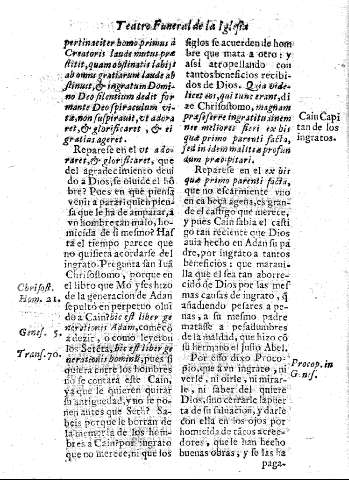 Teatro Funeral de la Iglesia
pertinaciter homo primus à
Creatoris laude mutus præ
stitit, quam obstinatè labijt
ab omni gratiarum laude ab
stinuit, & ingratum Domi
no Deo silentium dedit for
mante Deo spiraculum vi
tæ, non suspiravit, ut adora
ret, & glorificaret, & ei
gratias ageret.
Reparese en el vt ado
raret, & glorificaret, que
del agradecimiento deui
do à Dios, se oluide el hō
bre? Pues en que piensa
venir a parar quien pien
sa que le ha de amparar, à
vn hombre tan malo, ho
micida de si mesmo? Has
ta el tiempo parece que
no quisiera acordarse del
ingrato. Pregunta san Iuā
Chrisostomo, porque en
el libro que Moyses hizo
de la generacion de Adan
sepultò en perpetuo olui
do à Cain? hic est liber ge
nerationis Adam, comēçò
à dezir, o como leyeron
los Setēta, hic est liber ge
nerationis hominis, pues si
quiera entre los hombres
no se contara este Cain,
ya que le quieren quitar
su antiguedad, y no se po
nen antes que Seth? Sa
beis porque le borran de
la memoria de los hom
bres à Cain? por ingrato
que no merece, ni que los
Chrisost.
Hom. 21.
Genes. 5.
Transf. 70.
siglos se acuerden de hom
bre que mata a otro; y
assi atropellando con
tantos beneficios recibi
dos de Dios. Quia vide
licet eos, qui tunc erant, di
ze Chrisostomo, magnam
præseferre ingratitudinem
nec meliores fieri ex bis
qua primo parenti facta,
sed in idem malitiæ profun
dum præcipitari.
Reparese en el ex bis
quæ primo parenti facta,
que no escarmiente vno
en cabeça agena, es gran
de el castigo que merece,
y pues Cain sabia el casti
go tan reciente que Dios
auia hecho en Adan su pa
dre, por ingrato a tantos
beneficios: que marani
lla que el sea tan aborre
cido de Dios por las mes
mas causas de ingrato, q
añadiendo pesares a pe
nas, a su mesmo padre
matasse a pesadumbres
de la maldad, que hizo cō
su hermano el justo Abel.
Por esso dixo Proco
pio, que à vn ingrato, ni
verle, ni oirle, ni mirar
le, ni saber del quiere
Dios, sino cerrarle la puer
ta de su saluacion, y darle
con ella en los ojos por
homicida de tātos acree
dores, que le han hecho
buenas obras, y se las ha
Cain Capi
tan de los
ingratos.
Procop. in
Genes.
paga-